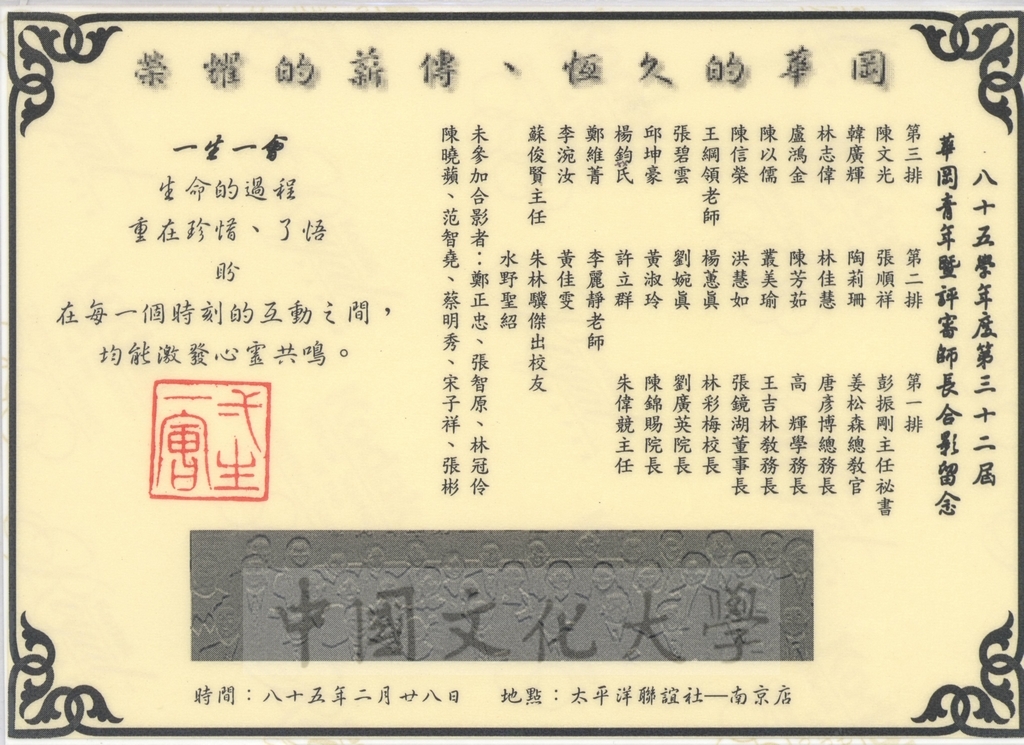 榮耀的薪傳、恆久的華岡
八十五學年度第三十二屆
華岡青年暨評審師長合影留念
第三排 第二排 第一排
陳文光 張順祥 彭振剛主任祕書
韓廣輝 陶莉珊 姜松森總教官
林志偉 林佳慧 唐彥博總務長
盧鴻金 陳芳茹 高　輝學務長
陳以儒 叢美瑜 王吉林教務長
陳信榮 洪慧如 張鏡湖董事長
王綱領老師 楊蕙眞 林彩梅校長
張碧雲 劉婉眞 劉廣英院長
邱坤豪 黃淑玲 陳錦賜院長
楊鈞芪 許立群 朱偉競主任
鄭維菁 李麗靜老師
李涴汝 黃佳雯
蘇俊賢主任 朱林驥傑出校友
水野聖紹
未參加合影者：鄭正忠、張智原、林冠伶
陳曉蘋、范智堯、蔡明秀、宋子祥、張彬
一生一會
生命的過程
重在珍惜、了悟
盼
在每一個時刻的互動之間，
均能激發心靈共鳴。
弌生
一會
中國文化大學
時間：八十五年二月廿八日　地點：太平洋聯誼社—南京店